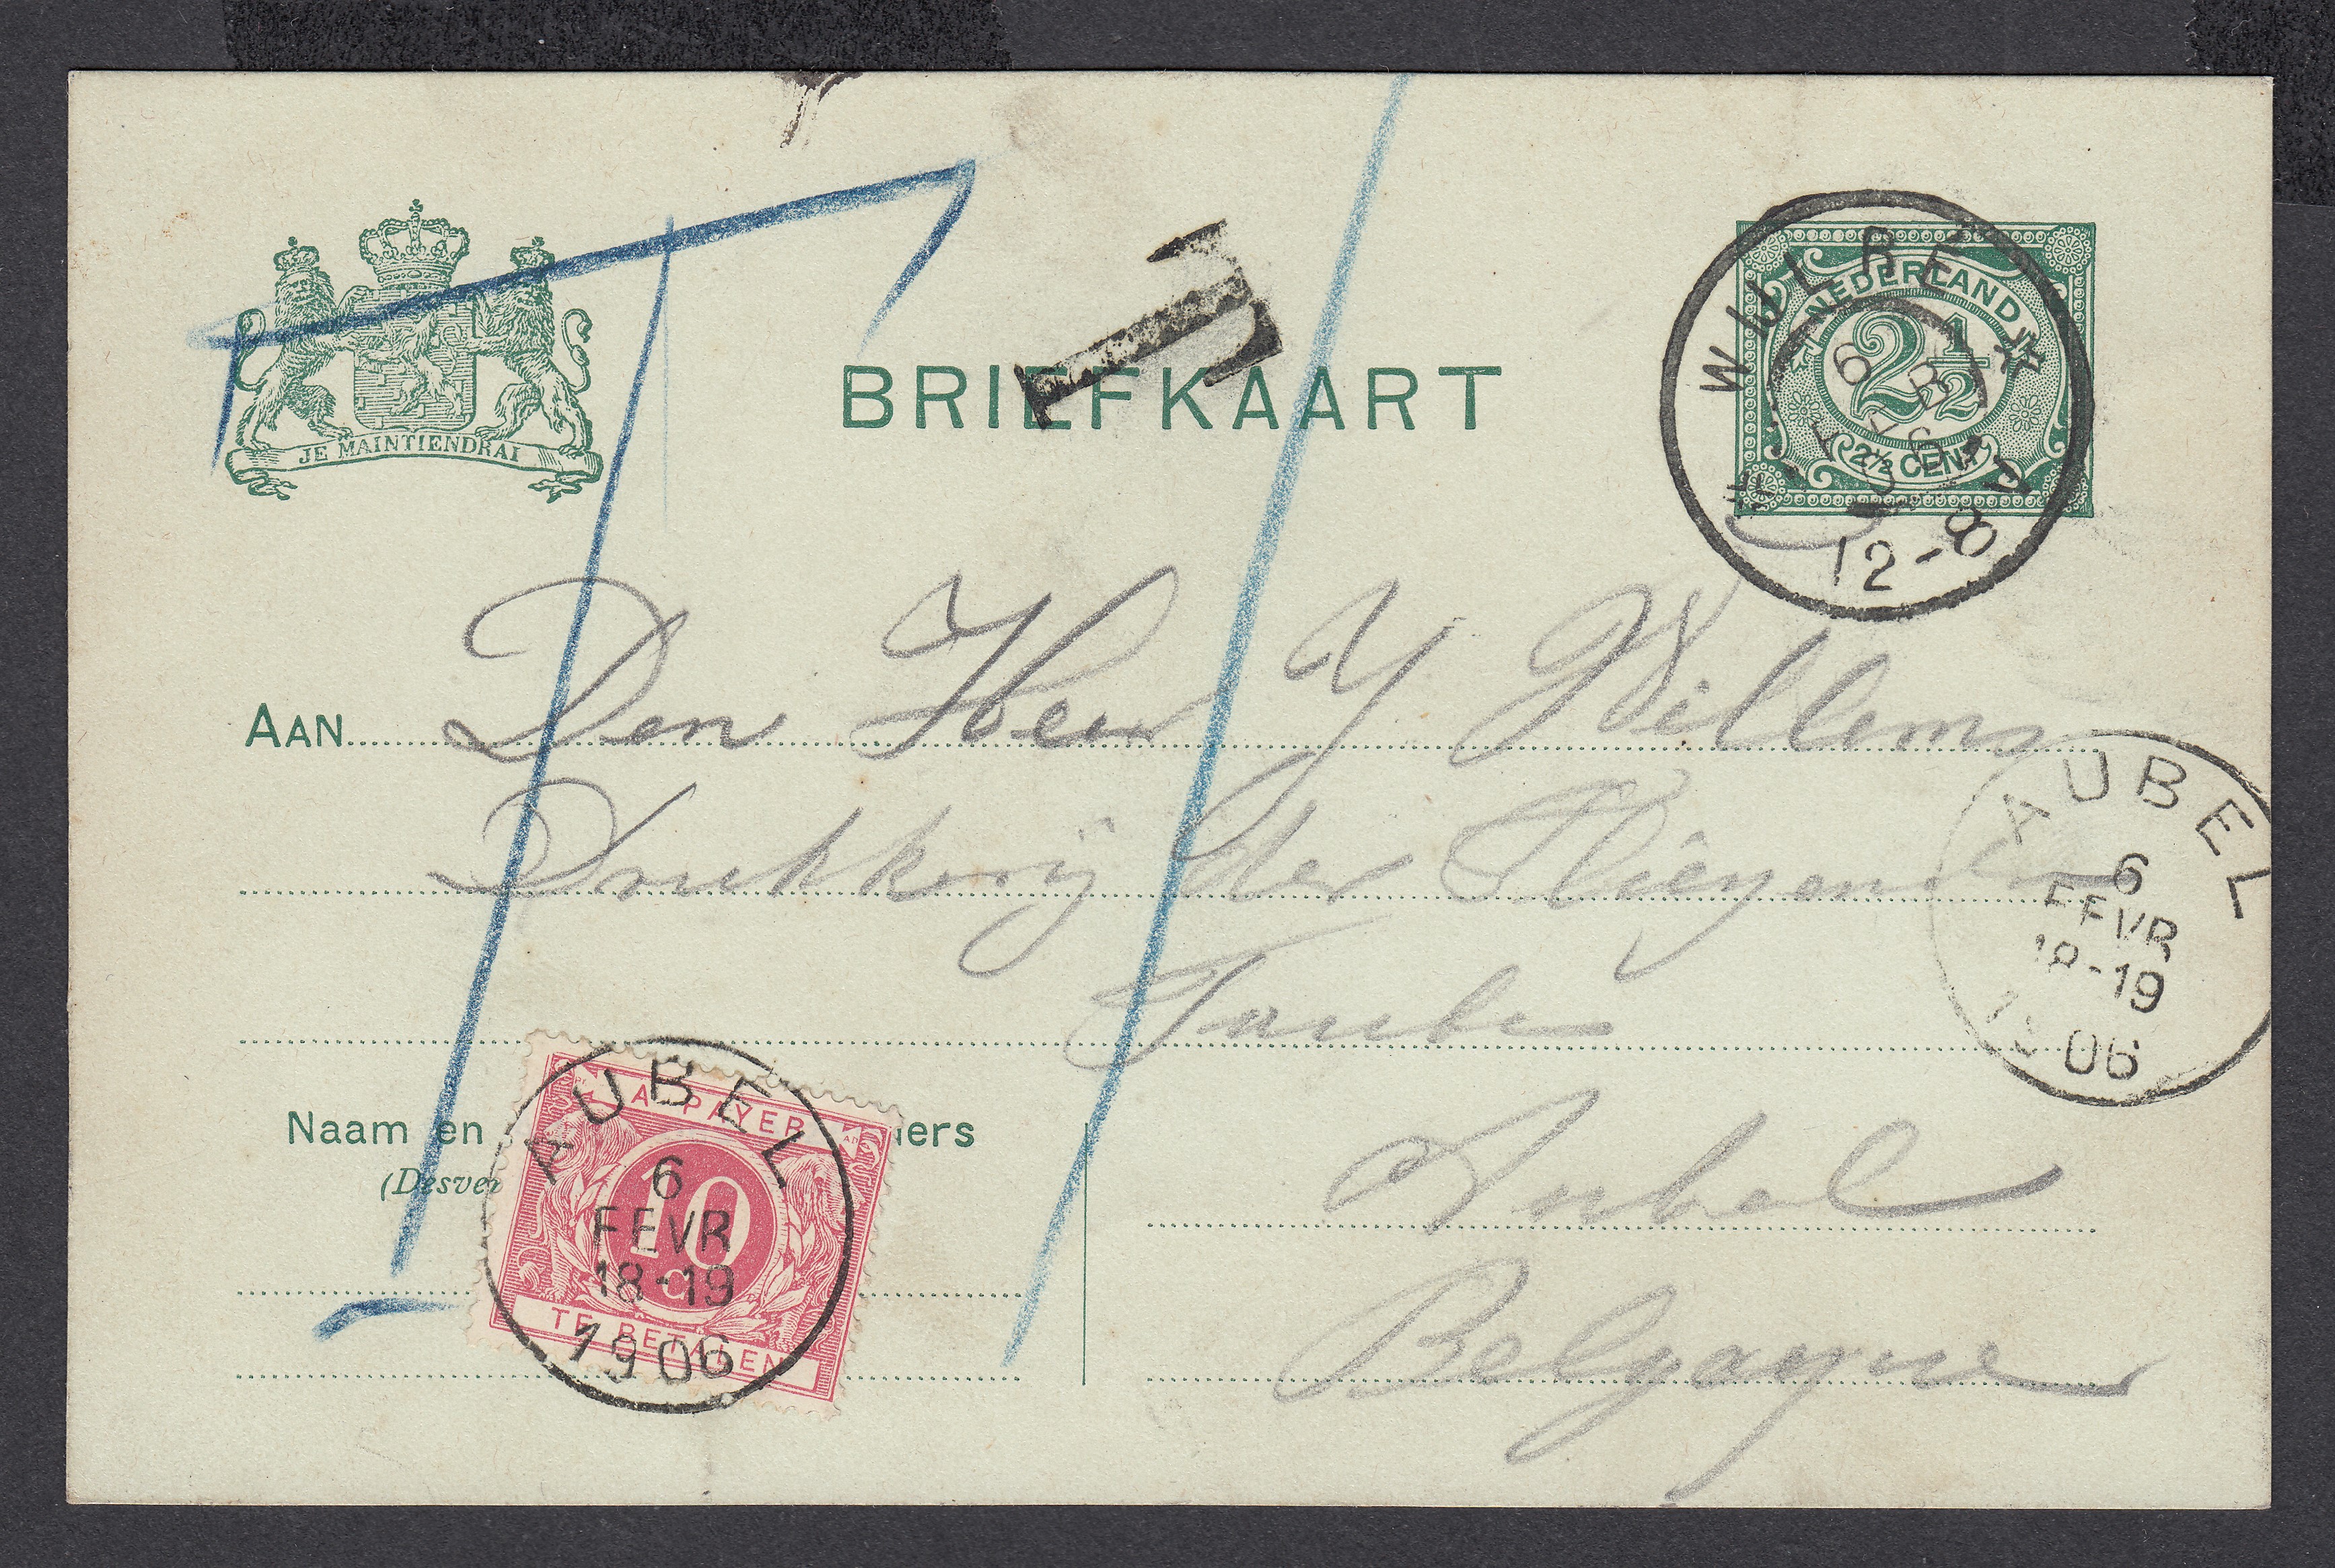 JE MAINTIENDRAI
BRIEFKAART
T
T
NEDERLAND
2½
2½ CENT
WIJLRE
6
12-8
AAN Den Heer Y Willems
Drukkerij der Vliegende
Aubel
Belgayne
AUBEL
6
FEVR
18-19
1906
Naam en
ners
A PAYER
10
C
TE BETALEN
AUBEL
6
FEVR
18-19
1906